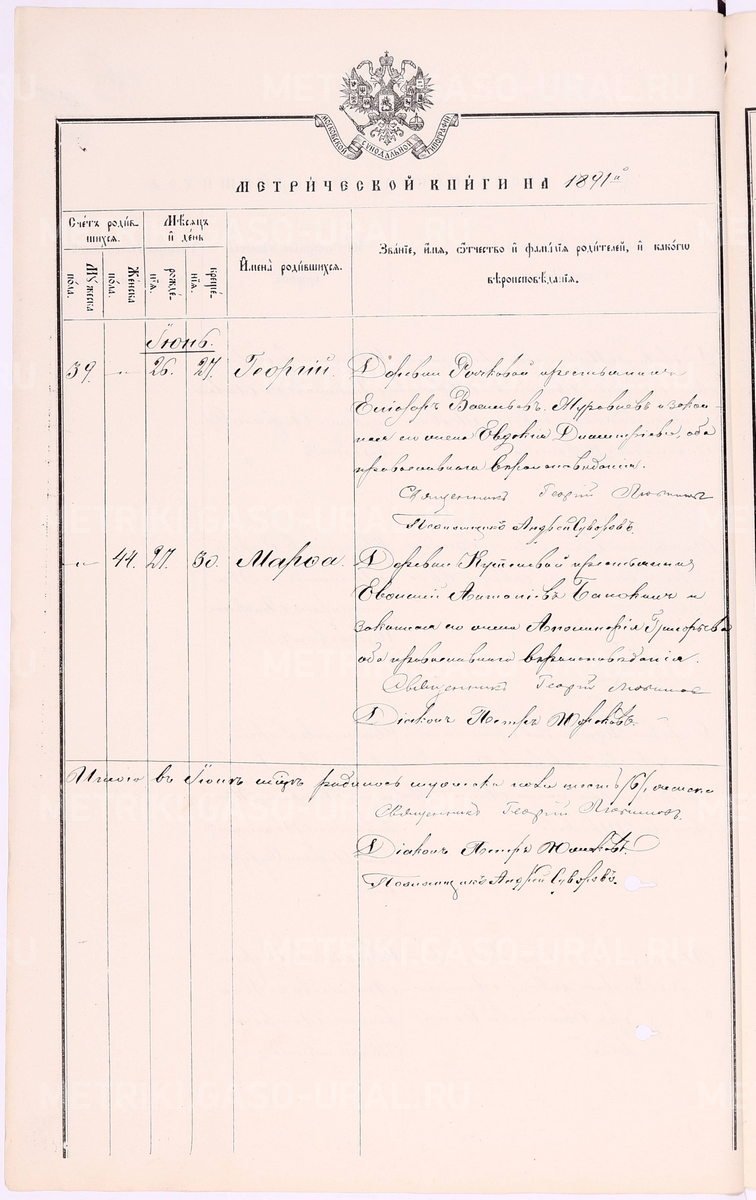 МОСКОВСКОЙ СѴНОДАЛЬНОЙ ТИПОГРАФІИ
МЕТРИЧЕСКОЙ КНИГИ НА 1891й
Счетъ родив-
шихся.
Мѣсяцъ
и день
Имена родившихся.
Званіе, имя, отчество и фамилія родителей, и какого
вѣроисповѣданія.
Мужеска
пола.
Женска
пола.
рожде-
нія.
креще-
нія.
Іюнь.
39. „ 26. 27. Георгій. Деревни крестьянинъ
Егоръ Васильевъ Муровцевъ и закон-
ная его жена Евдокія Димитріева, оба
православнаго вѣроисповѣданія.
Священникъ Георгій Любимов
Псаломщикъ Андрей Суворовъ.
„ 44. 27. 30. Марѳа. Деревни крестьянинъ
Евѳимій и
законная его жена Григорьева
оба православнаго вѣроисповѣданія.
Священникъ Георгій Любимов
Діаконъ Петръ
Итого въ Іюнѣ родилось мужеска пола шесть /6/, женска
Священникъ Георгій Любимовъ.
Діаконъ Петръ
Псаломщикъ Андрей Суворовъ.
METRIKI.GASO-URAL.RU